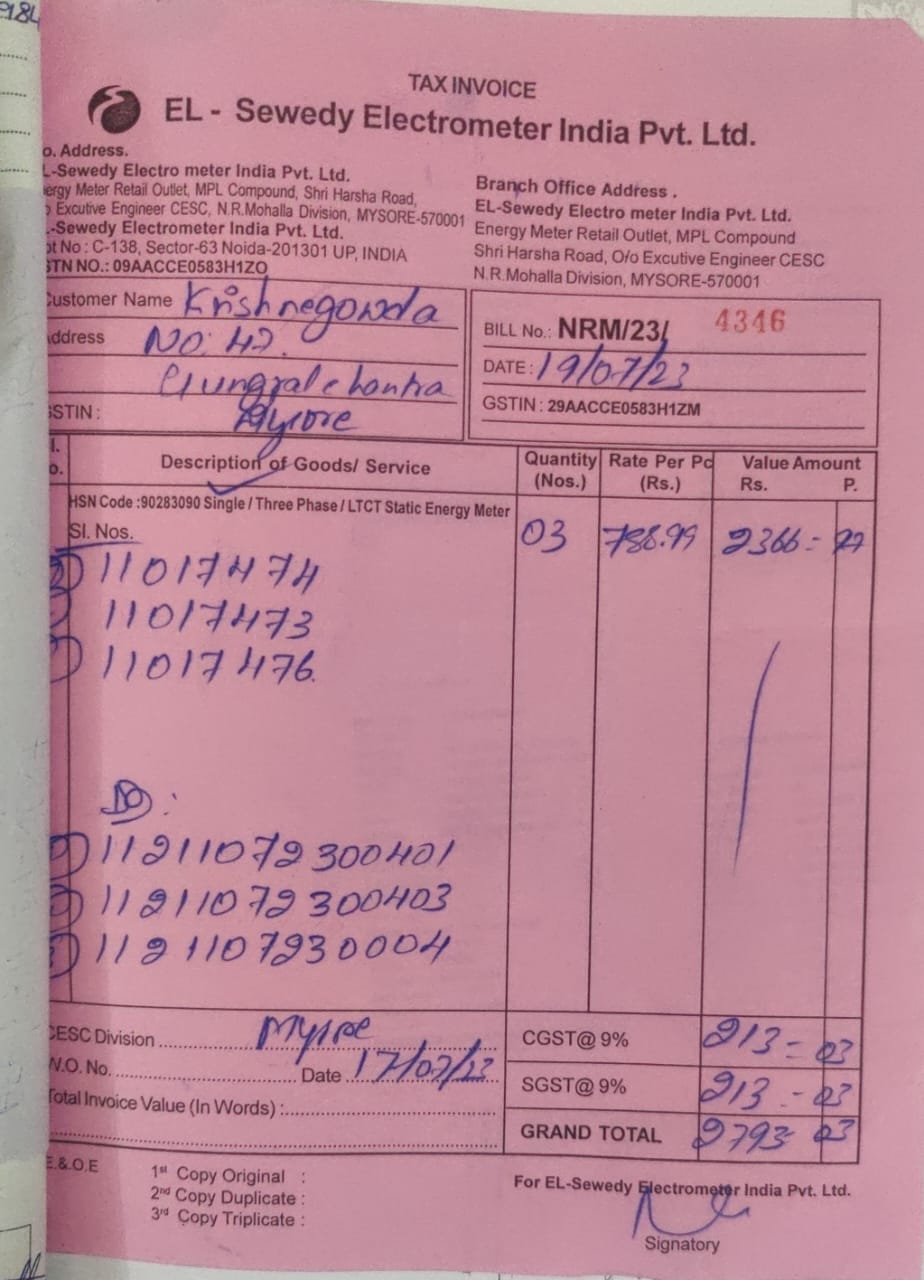 9184
TAX INVOICE
EL - Sewedy Electrometer India Pvt. Ltd.
o. Address.
L-Sewedy Electro meter India Pvt. Ltd.
ergy Meter Retail Outlet, MPL Compound, Shri Harsha Road,
o Excutive Engineer CESC, N.R.Mohalla Division, MYSORE-570001
-Sewedy Electrometer India Pvt. Ltd.
ot No : C-138, Sector-63 Noida-201301 UP, INDIA
STN NO.: 09AACCE0583H1ZO
Branch Office Address .
EL-Sewedy Electro meter India Pvt. Ltd.
Energy Meter Retail Outlet, MPL Compound
Shri Harsha Road, O/o Excutive Engineer CESC
N.R.Mohalla Division, MYSORE-570001
Customer Name Krishnegowda
Address NO: 42.
GSTIN :
BILL No.: NRM/23/ 4346
DATE : 19/07/23
GSTIN : 29AACCE0583H1ZM
l. o. Description of Goods/ Service Quantity (Nos.) Rate Per Pc (Rs.) Value Amount Rs. P.
HSN Code :90283090 Single / Three Phase / LTCT Static Energy Meter
Sl. Nos. 03 788.99 2366 = 97
11017474
11017473
11017476.
11211072300401
11211072300403
1121107230004
CESC Division Mysore
W.O. No. Date 17/07/23
Total Invoice Value (In Words) :
CGST@ 9% 213 = 03
SGST@ 9% 213 - 03
GRAND TOTAL 2793- 03
E.&.O.E
1st Copy Original :
2nd Copy Duplicate :
3rd Copy Triplicate :
For EL-Sewedy Electrometer India Pvt. Ltd.
Signatory